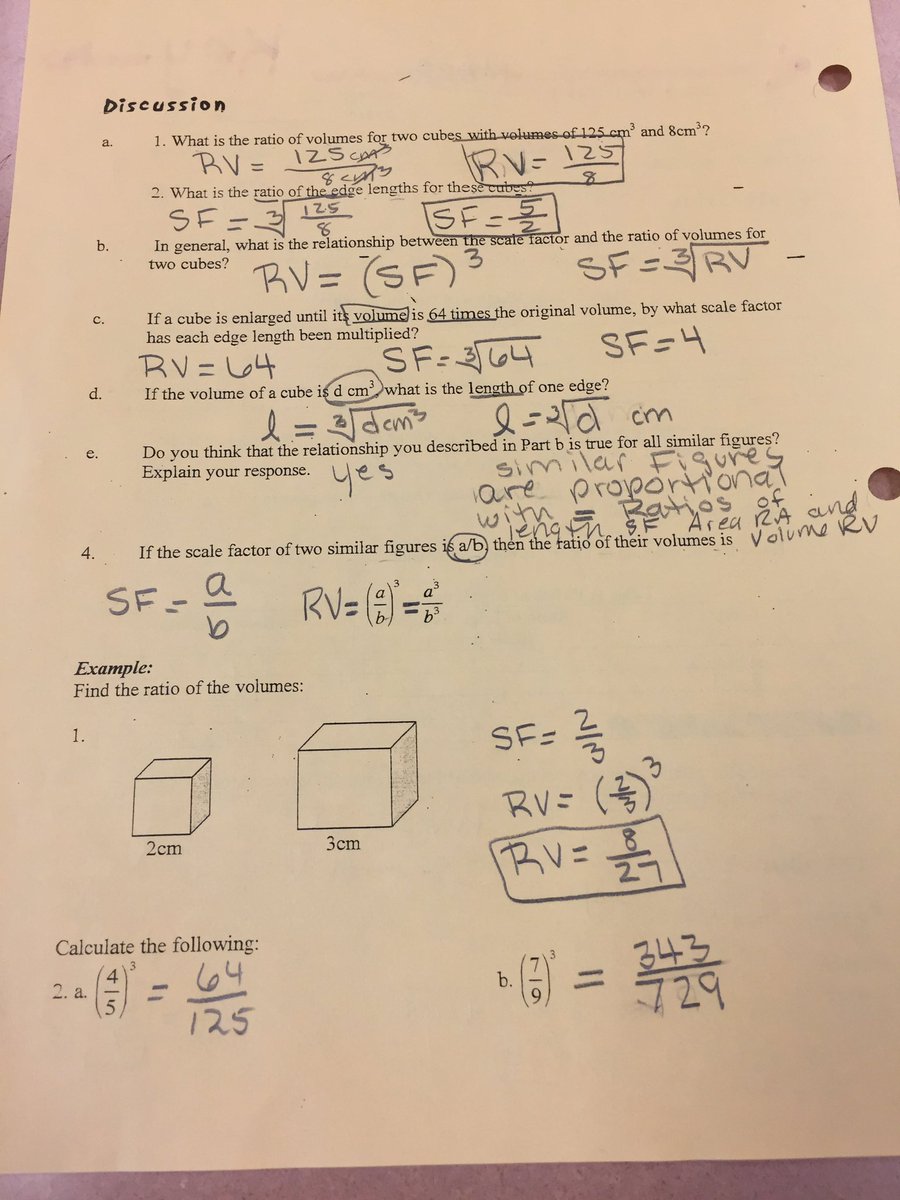 Discussion
a. 1. What is the ratio of volumes for two cubes with volumes of 125 cm³ and 8cm³?
RV = 125 cm³/8 cm³ RV = 125/8
2. What is the ratio of the edge lengths for these cubes?
SF = ∛(125/8) SF = 5/2
b. In general, what is the relationship between the scale factor and the ratio of volumes for
two cubes?
RV = (SF)³ SF = ∛RV
c. If a cube is enlarged until its volume is 64 times the original volume, by what scale factor
has each edge length been multiplied?
RV = 64 SF = ∛64 SF = 4
d. If the volume of a cube is d cm³, what is the length of one edge?
l = ∛(d cm³) l = ∛d cm
e. Do you think that the relationship you described in Part b is true for all similar figures?
Explain your response. yes
similar Figures
are proportional
with = Ratios of
length SF Area RA and
Volume RV
4. If the scale factor of two similar figures is a/b, then the ratio of their volumes is
SF = a/b RV = (a/b)³ = a³/b³
Example:
Find the ratio of the volumes:
1.
2cm 3cm
SF = 2/3
RV = (2/3)³
RV = 8/27
Calculate the following:
2. a. (4/5)³ = 64/125 b. (7/9)³ = 343/729